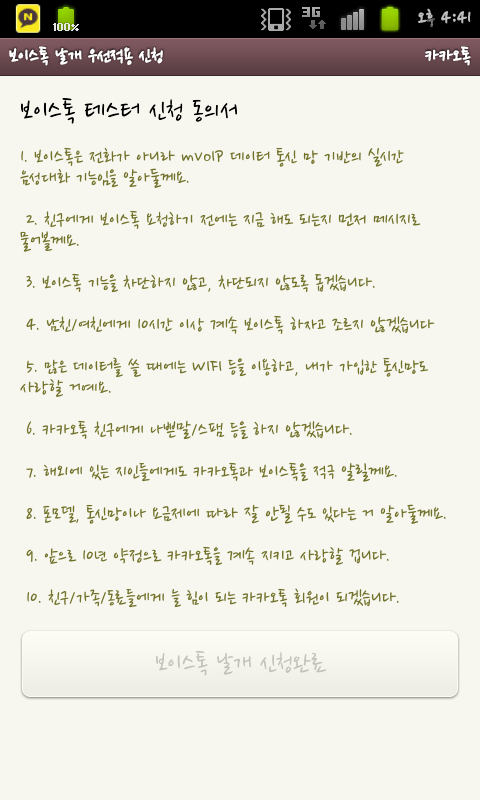 100% 3G 오후 4:41
보이스톡 날개 우선적용 신청 카카오톡
보이스톡 테스터 신청 동의서
1. 보이스톡은 전화가 아니라 mVoIP 데이터 통신 망 기반의 실시간
음성대화 기능임을 알아둘께요.
2. 친구에게 보이스톡 요청하기 전에는 지금 해도 되는지 먼저 메시지로
물어볼께요.
3. 보이스톡 기능을 차단하지 않고, 차단되지 않도록 돕겠습니다.
4. 남친/여친에게 10시간 이상 계속 보이스톡 하자고 조르지 않겠습니다
5. 많은 데이터를 쓸 때에는 WIFI 등을 이용하고, 내가 가입한 통신망도
사랑할 거예요.
6. 카카오톡 친구에게 나쁜말/스팸 등을 하지 않겠습니다.
7. 해외에 있는 지인들에게도 카카오톡과 보이스톡을 적극 알릴께요.
8. 폰모델, 통신망이나 요금제에 따라 잘 안될 수도 있다는 거 알아둘께요.
9. 앞으로 10년 약정으로 카카오톡을 계속 지키고 사랑할 겁니다.
10. 친구/가족/동료들에게 늘 힘이 되는 카카오톡 회원이 되겠습니다.
보이스톡 날개 신청완료